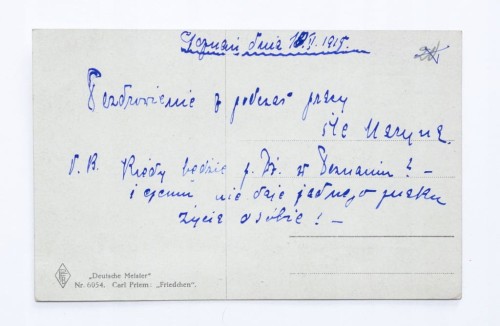 Poznań dnia 18.V.1915.
Pozdrowienie z podczas pracy
śle Maryna.
P. B. Kiedy będzie p. Dr. w Poznaniu? -
i czemu nie daje jednego znaku
życia o sobie! -
„Deutsche Meister"
Nr. 6954. Carl Priem: „Friedchen".